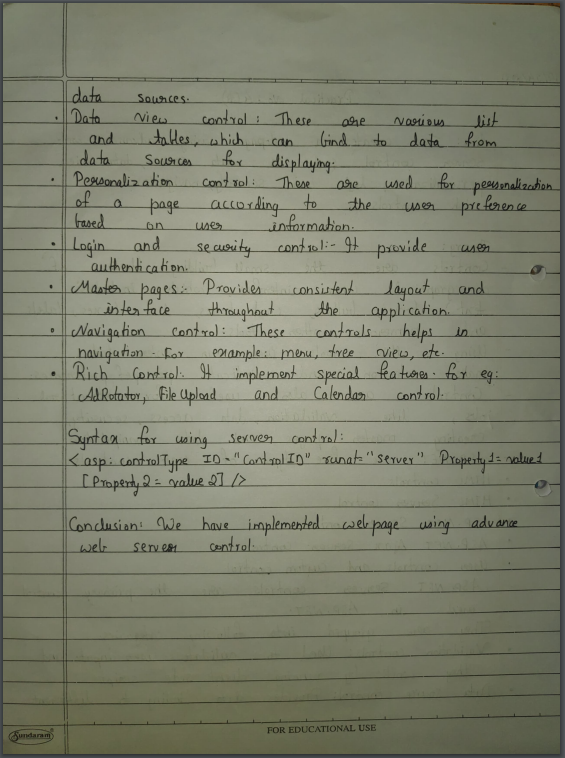 data sources.
• Data view control: These are various list
and tables, which can bind to data from
data sources for displaying.
• Personalization control: These are used for personalization
of a page according to the user preference
based on user information.
• Login and security control:- It provide user
authentication.
• Master pages:- Provides consistent layout and
interface throughout the application.
• Navigation control: These controls helps in
navigation. For example: menu, tree view, etc.
• Rich Control: It implement special features. for eg:
AdRotator, File Upload and Calendar control.
Syntax for using server control:
< asp: controlType ID = "ControlID" runat = "server" Property1 = value1
[Property2 = value2] />
Conclusion: We have implemented web page using advance
web server control.
Sundaram
FOR EDUCATIONAL USE